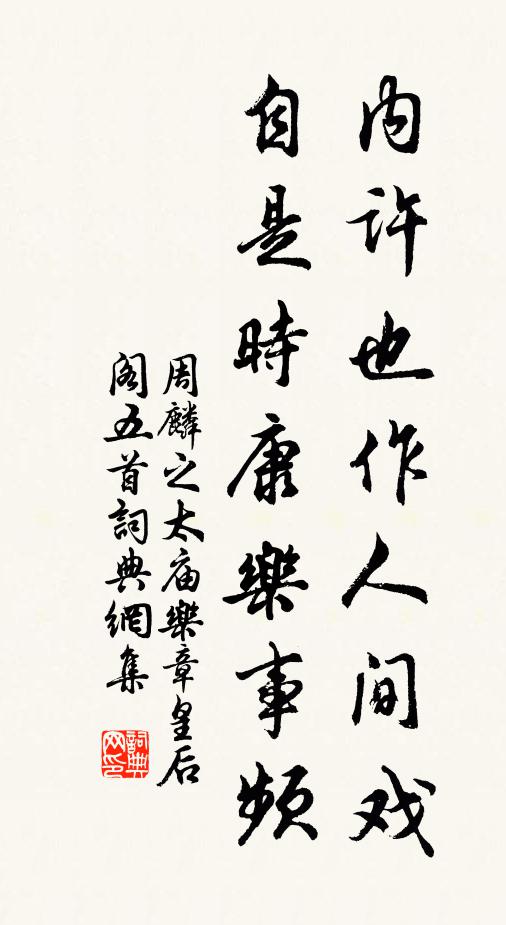 内许也作人间戏
自是時康樂事頻
周麟之太庙樂章皇后
阁五首詞典網集
詞典网印